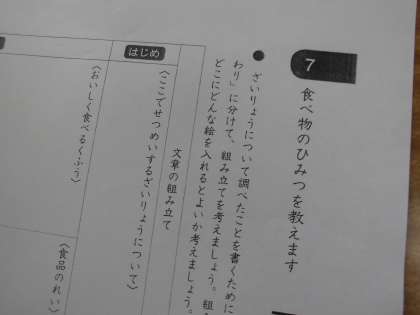 7
食べ物のひみつを教えます
● ざいりょうについて調べたことを書くために
わり」に分けて、組み立てを考えましょう。組
どこにどんな絵を入れるとよいか考えましょう。
文章の組み立て
はじめ
〈ここでせつめいするざいりょうについて〉
〈おいしく食べるくふう〉
〈食品のれい〉